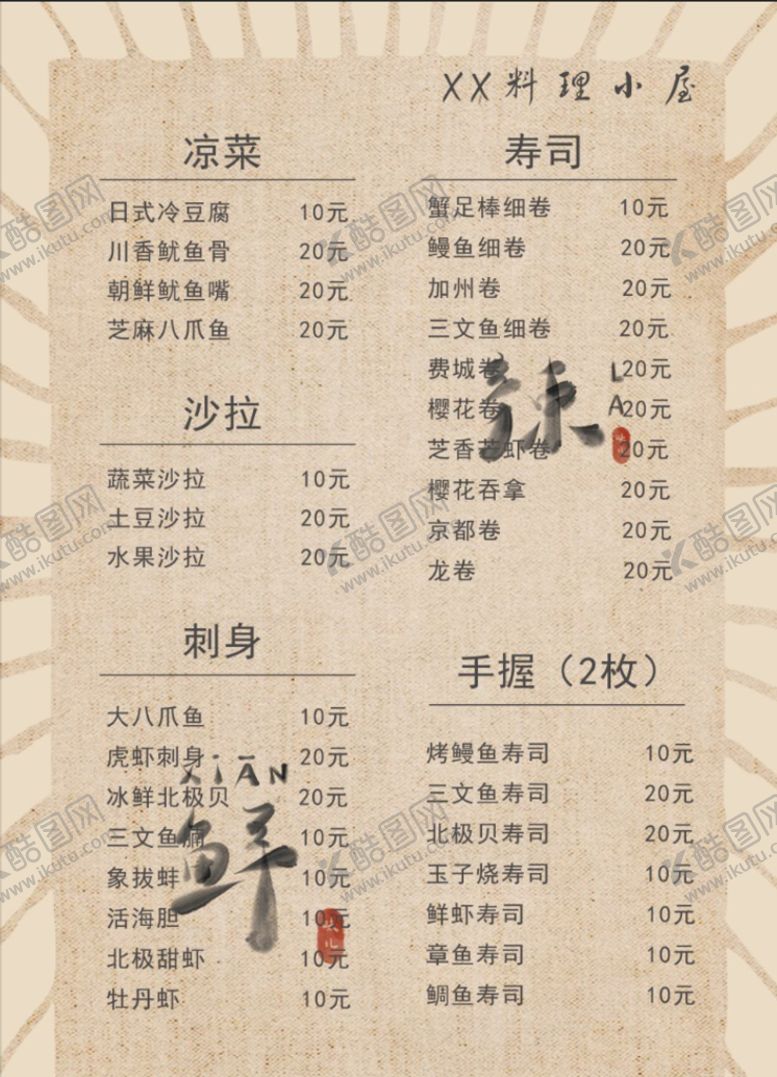 XX料理小屋
凉菜
日式冷豆腐 10元
川香鱿鱼骨 20元
朝鲜鱿鱼嘴 20元
芝麻八爪鱼 20元
沙拉
蔬菜沙拉 10元
土豆沙拉 20元
水果沙拉 20元
刺身
大八爪鱼 10元
虎虾刺身 20元
冰鲜北极贝 20元
三文鱼腩 10元
象拔蚌 10元
活海胆 10元
北极甜虾 10元
牡丹虾 10元
XIAN
鲜
寿司
蟹足棒细卷 10元
鳗鱼细卷 20元
加州卷 20元
三文鱼细卷 20元
费城卷 20元
樱花卷 20元
芝香芒虾卷 20元
樱花吞拿 20元
京都卷 20元
龙卷 20元
辣
LA
手握（2枚）
烤鳗鱼寿司 10元
三文鱼寿司 20元
北极贝寿司 20元
玉子烧寿司 10元
鲜虾寿司 10元
章鱼寿司 10元
鲷鱼寿司 10元
酷图网
www.ikutu.com